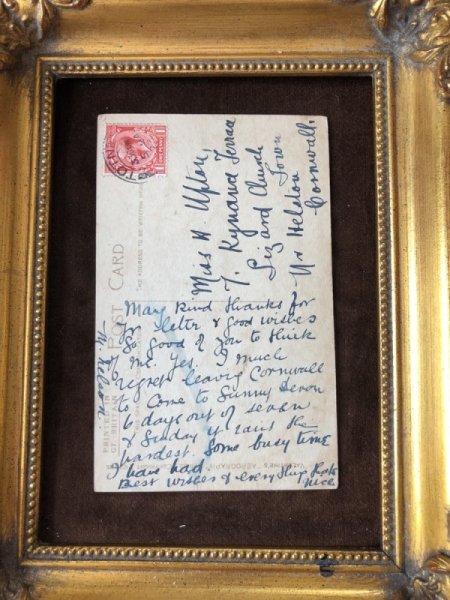 ONE PENNY
Miss W. Upton,
7. Kynance Terrace
Lizard Church
Town
Nr Helston
Cornwall.
POST CARD
THE ADDRESS TO BE WRITTEN
PRINTED IN
OF BRITAIN
VALENTINE'S
Many kind thanks for
yr letter & good wishes
So good of you to think
of me. Yes. I much
regret leaving Cornwall
to Come to Sunny Devon
6 days out of seven
& Sunday it rains the
hardest. Some busy time
I have had
Best wishes & everything that's
nice